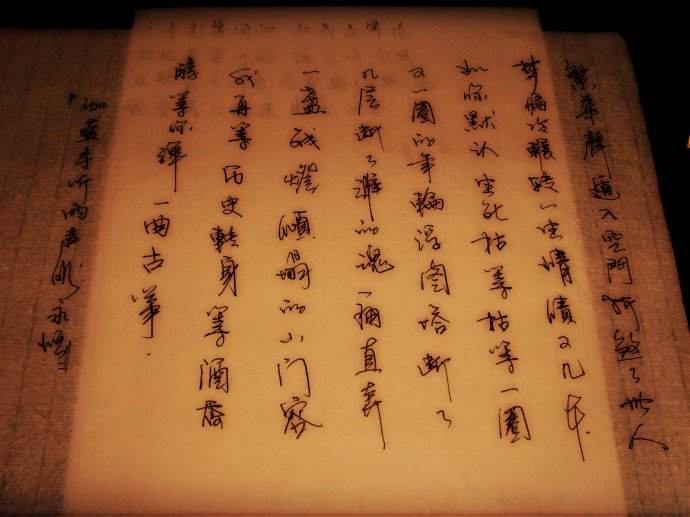 繁華聲遁入空門折煞了世人
梦偏冷輾轉一生情債又几本
如你默认生死枯等枯等一圈
又一圈的年輪浮图塔断了
几层断了誰的魂一痛直奔
一盞残燈傾塌的山门容
我再等历史轉身等酒香
醇等你弹一曲古筝.
伽蓝寺听雨声盼永恒